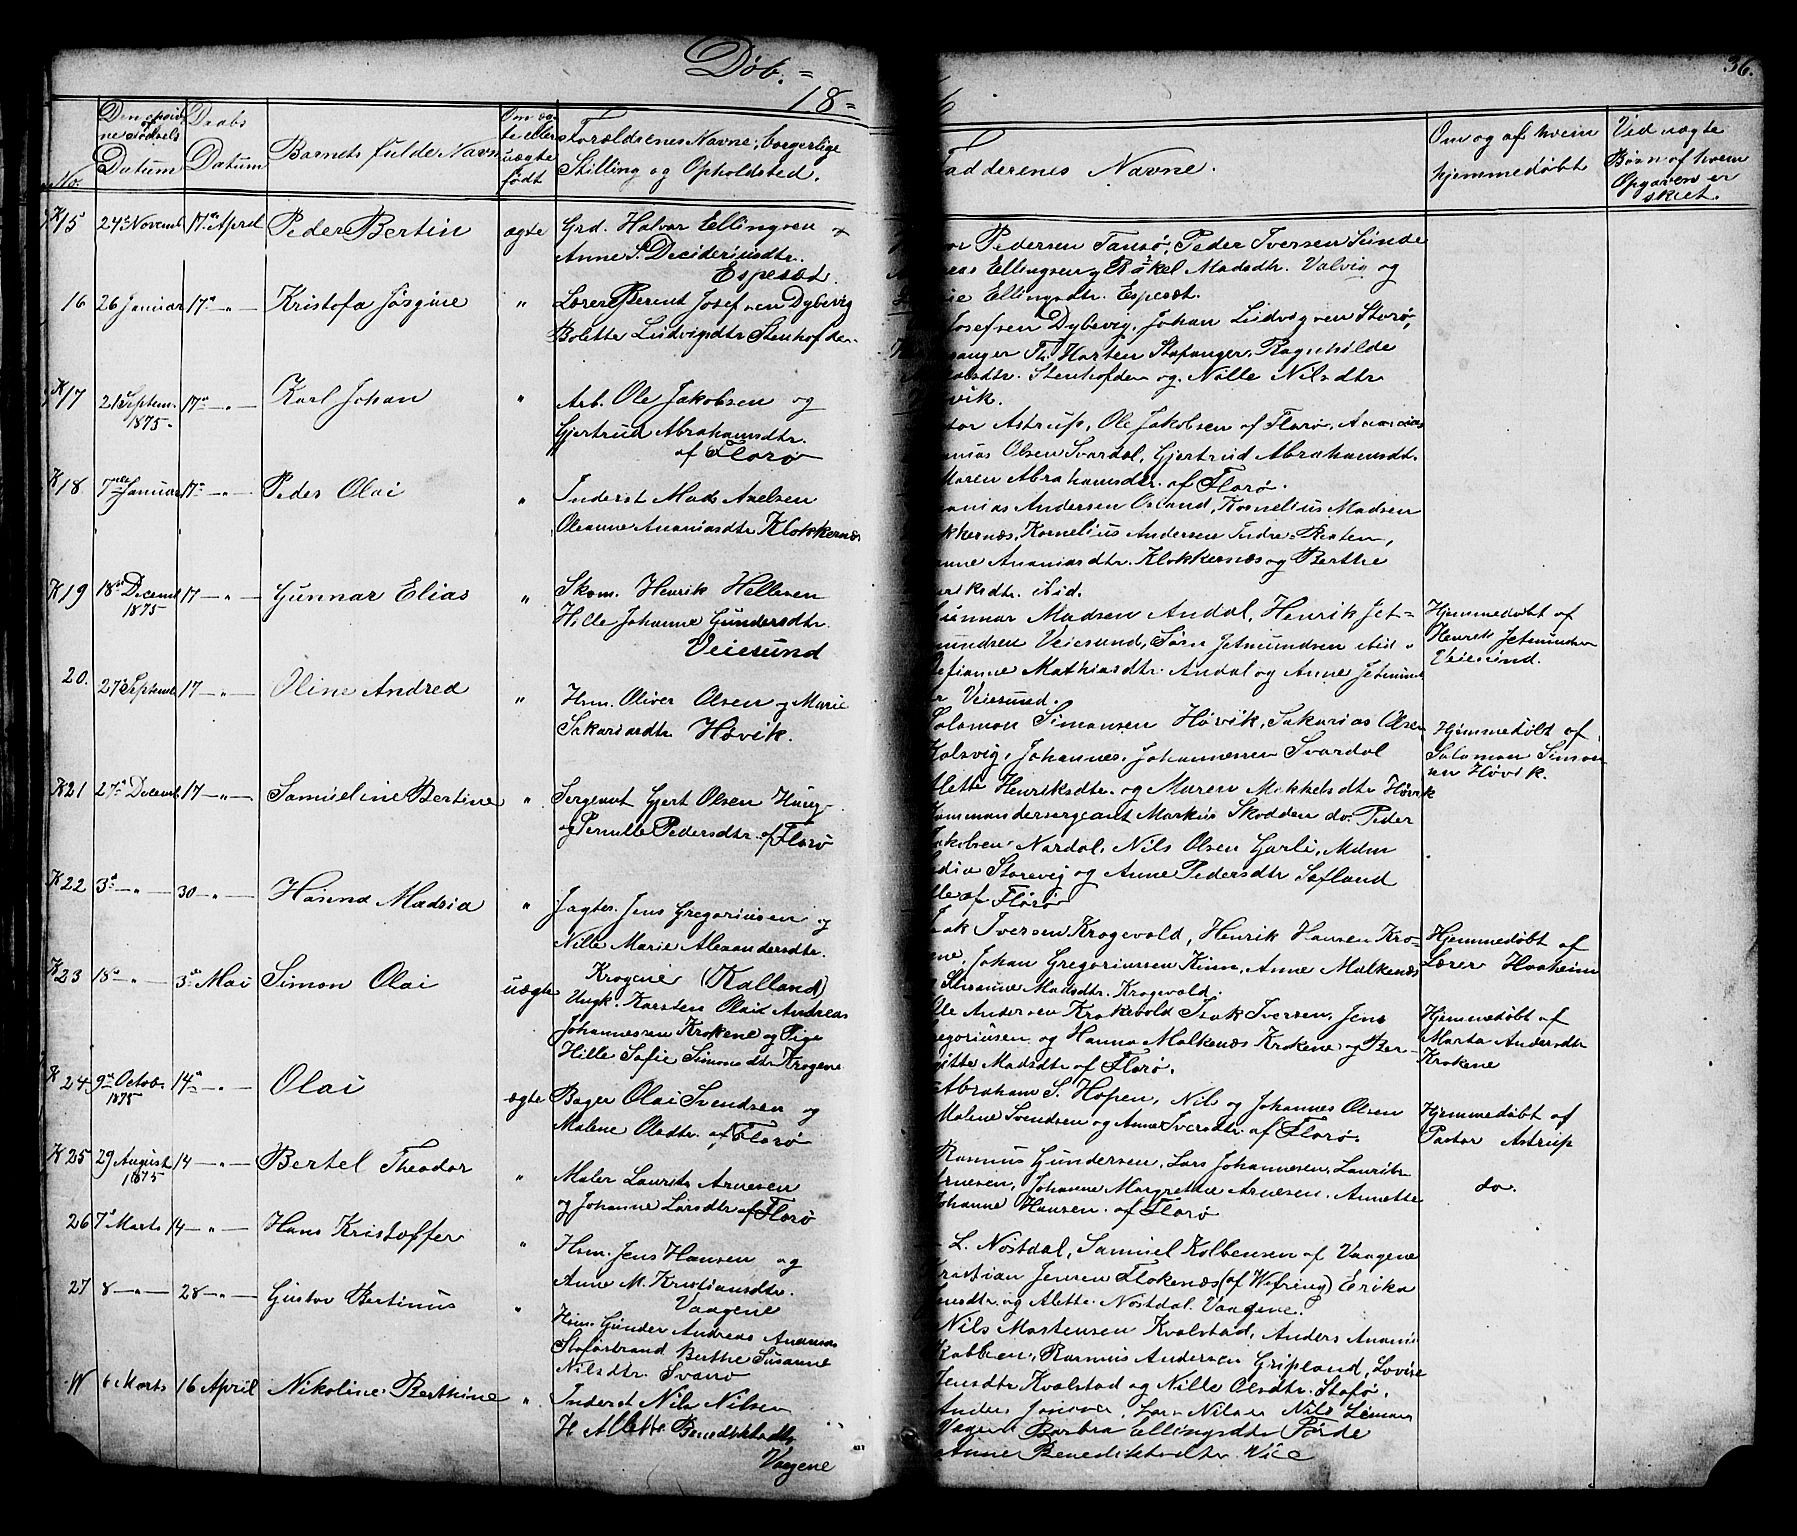 Døb.=
18=
6
36.
No.
Datum
Daabs
Datum
Barnets fulde Navn
Om æg-
te eller
uægte
født
Forældrenes Navne, borgerlige
Stilling og Opholdsted.
Fadderenes Navne.
Om og af hvem
hjemmedøbt
Ved uægte
Børn af hvem
Opgaven er
skeet.
K 15 24de Novemb. 17de April Peder Bertin ægte Grd. Halvor Ellingsen
Anne S. Decideriusdtr.
Espeset.
Pedersen Tansø, Peder Iversen Sunde
Ellingsen, Rakel Madsdtr. Valvig og
Ellingsdtr. Espeset.
16 26 Januar 17de — „ — Kristofa Jørgine „ Lærer Berent Josefsen Dybevig
Bolette Ludvigsdtr. Stenhofden
Josefsen Dybevig, Johan Ludvigsen Storø,
Th. Harten Stafanger, Ragnhilde
Stenhofden og Nille Nilsdtr.
K 17 21 Septem. 1875 17de — „ — Karl Johan „ Arb. Ole Jakobsen og
Gjertrud Abrahamsdtr.
af Florø
Astrup, Ole Jakobsen af Florø, Ananias
Olsen Svardal, Gjertrud Abrahamsdtr.
Maren Abrahamsdtr. af Florø.
K 18 7de Januar 17 — „ — Peder Olai „ Inderst Mads Axelsen
Oleanne Ananiasdtr. Klokkernæs
Andersen Osland, Kornelius Madsen
Kornelius Andersen Indre-Resten,
Ananiasdtr. Klokkernæs og Berthe
ibid.
K 19 18de Decemb. 1875 17 — „ — Gunnar Elias „ Skom. Henrik Hellesen
Hille Johanne Gundersdtr.
Veiesund
Gunnar Madsen Andal, Henrik Jet-
mundsen Veiesund, Søren Jetmundsen ibid.
Mathiasdtr. Andal og Anne Jetmund
Veiesund.
Hjemmedøbt af
Henrik Jetmundsen
Veiesund.
20. 27de Septemb. 17 — „ — Oline Andrea „ Hsm. Oliver Olsen og Marie
Sakariasdtr. Høvik.
Salamon Simonsen Høvik, Sakarias Olsen
Kalsvig, Johannes Johannessen Svardal
Henriksdtr. og Maren Mikkelsdtr. Høvik
Hjemmedøbt af
Salamon Simon-
sen Høvik.
K 21 27de Decemb. 17 — „ — Samueline Bertine „ Sergeant Gjert Olsen Haug
og Pernille Pedersdtr. af Florø
Kommandersergeant Markus Skodden do. Peder
Jakobsen Nardal, Nils Olsen Garli, Mdm
Storevig og Anne Pedersdtr. Sefland
af Florø
K 22 3de — „ — 30 — „ — Hansna Madsia „ Jagtes. Jens Gregoriusen og
Nille Marie Alexandersdtr.
Krogene (Kalland)
Isak Iversen Krogevold, Henrik Hansen Kro-
Johan Gregoriussen Kinn, Anne Malkenæs
Susanne Madsdtr. Krogevold.
Hjemmedøbt af
Lærer Haaheim
K 23 18de — „ — 3de Mai Simon Olai uægte Ungk. Karsten Olai Andreas
Johannessen Krokene og Pige
Hille Sofie Simonsdtr. Krogene
Ole Andersen Krokevold Isak Iversen, Jens
Gregoriusen og Hanna Malkenæs Krokene og Ber-
gitte Madsdtr. af Florø.
Hjemmedøbt af
Marta Andersdtr.
Krokene
K 24 9de Octob. 1875 14de — „ — Olai ægte Bager Olai Svendsen og
Malene Olsdtr. af Florø
Abraham S. Hopen, Nils og Johannes Olsen
Malene Svendsen og Anne Iversdtr. af Florø.
Hjemmedøbt af
Pastor Astrup
K 25 29 August 1875 14 — „ — Bertel Theodor „ Maler Laurits Arnesen
og Johanne Larsdtr. af Florø
Rasmus Gundersen, Lars Johannesen, Laurits
Arnesen, Johanne Margrethe Arnesen. Annette
Johanne Hansen. af Florø
do.
26 7de Marts 14 — „ — Hans Kristoffer „ Hsm. Jens Hansen og
Anne M. Kristiansdtr.
Vaagene
L. Nostdal, Samuel Kolbensen af Vaagene
Kristian Jensen Flokenæs (af Vefring) Erika
og Alette Nostdal. Vaagene.
27 8 — „ — 28 — „ — Gustav Bertinus „ Hsm. Gunder Andreas Ananias
Staførbrand Berthe Susanne
Nilsdtr. Svanø
Nils Mortensen Kvalstad, Anders Anani
Rasmus Andersen Gripland, Lovise
Jensdtr. Kvalstad og Nille Olsdtr. Stafø.
W 6 Marts 16 April Nikoline Berthine „ Inderst Nils Nilsen
H Allette Benedikteadtr.
Vaagene
Anders Nilsen Nils
Barbra Ellingsdtr. Førde
Anne Benediktesdtr. Vie